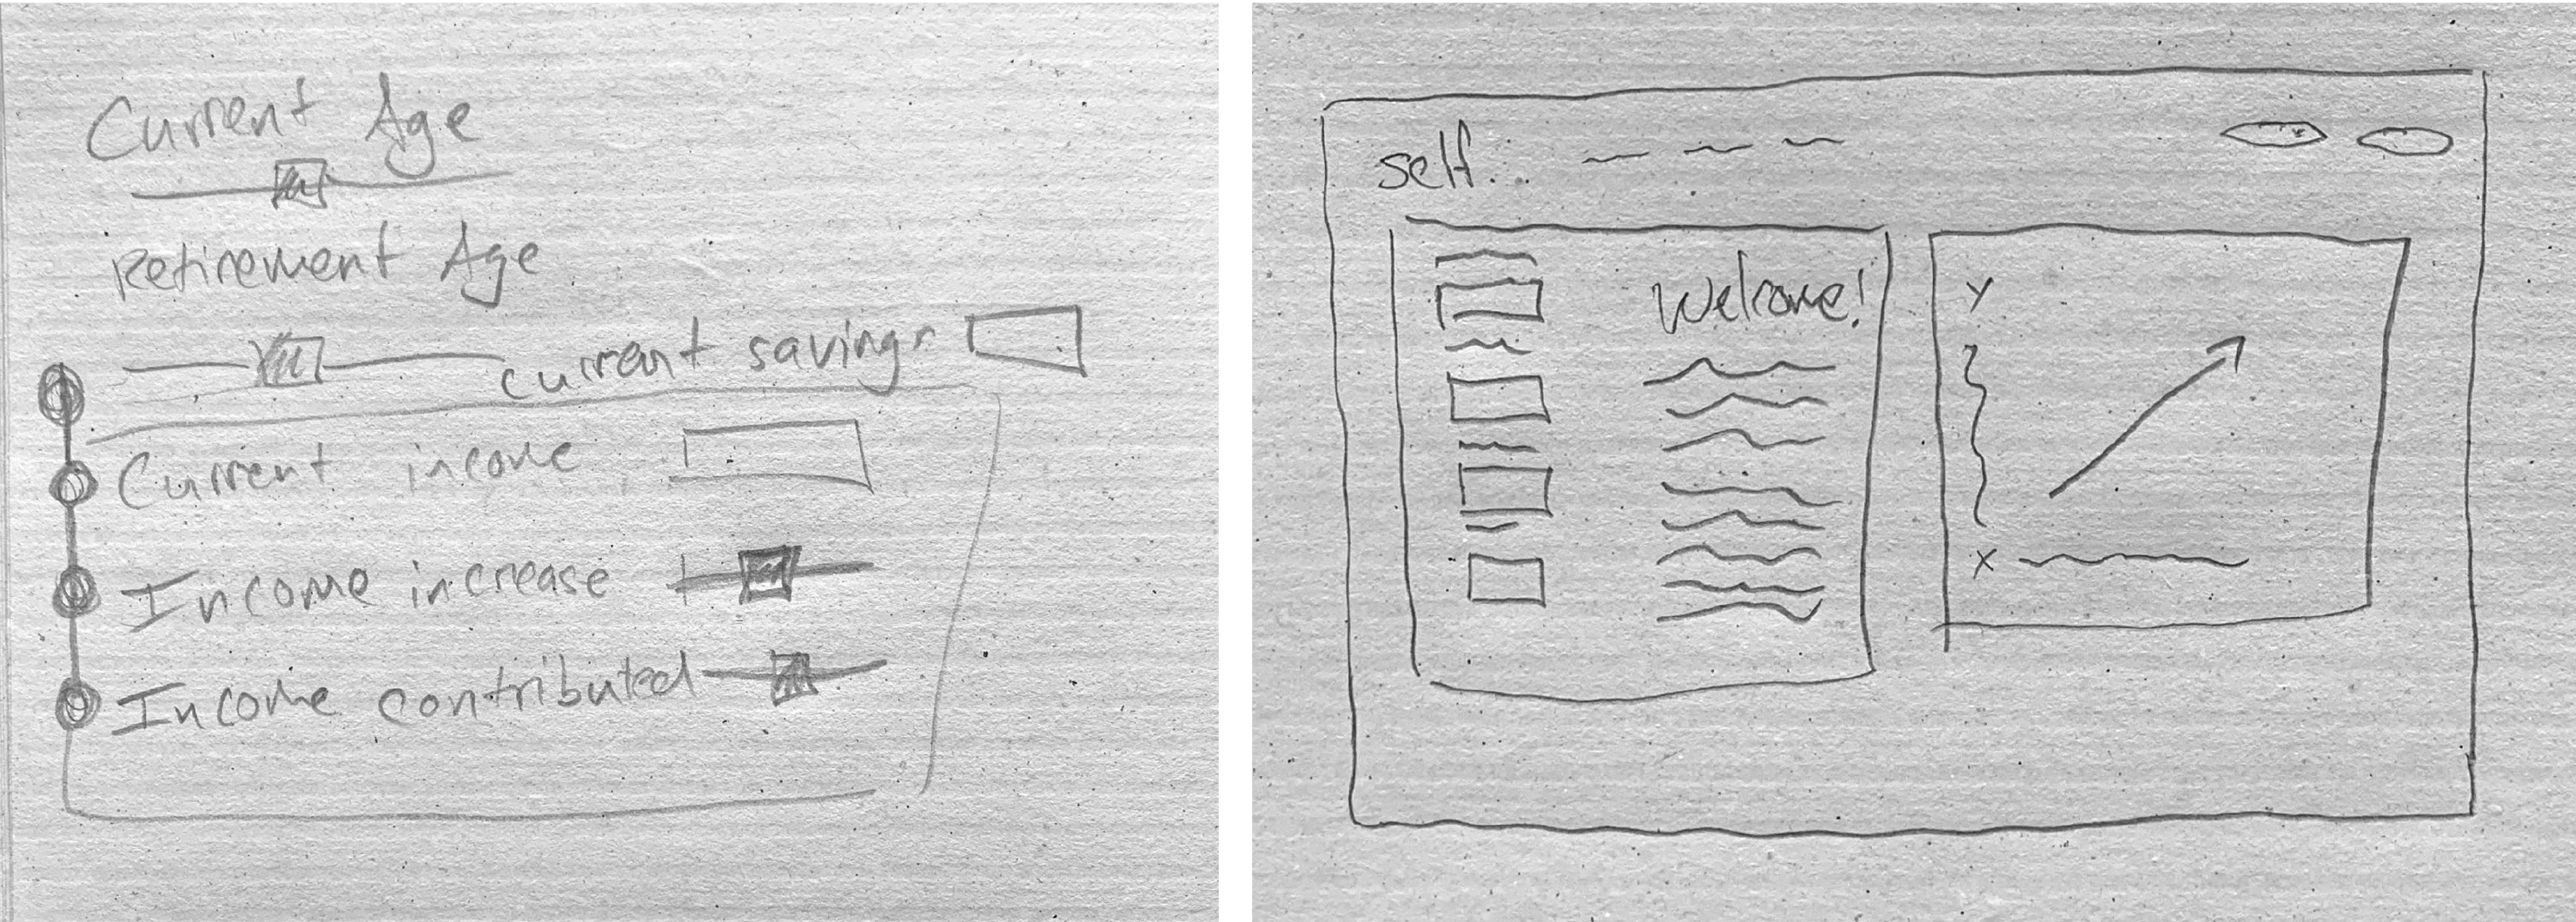 Current Age
Retirement Age
current savings
Current income
Income increase
Income contributed
self.
Welcome!
Y
X